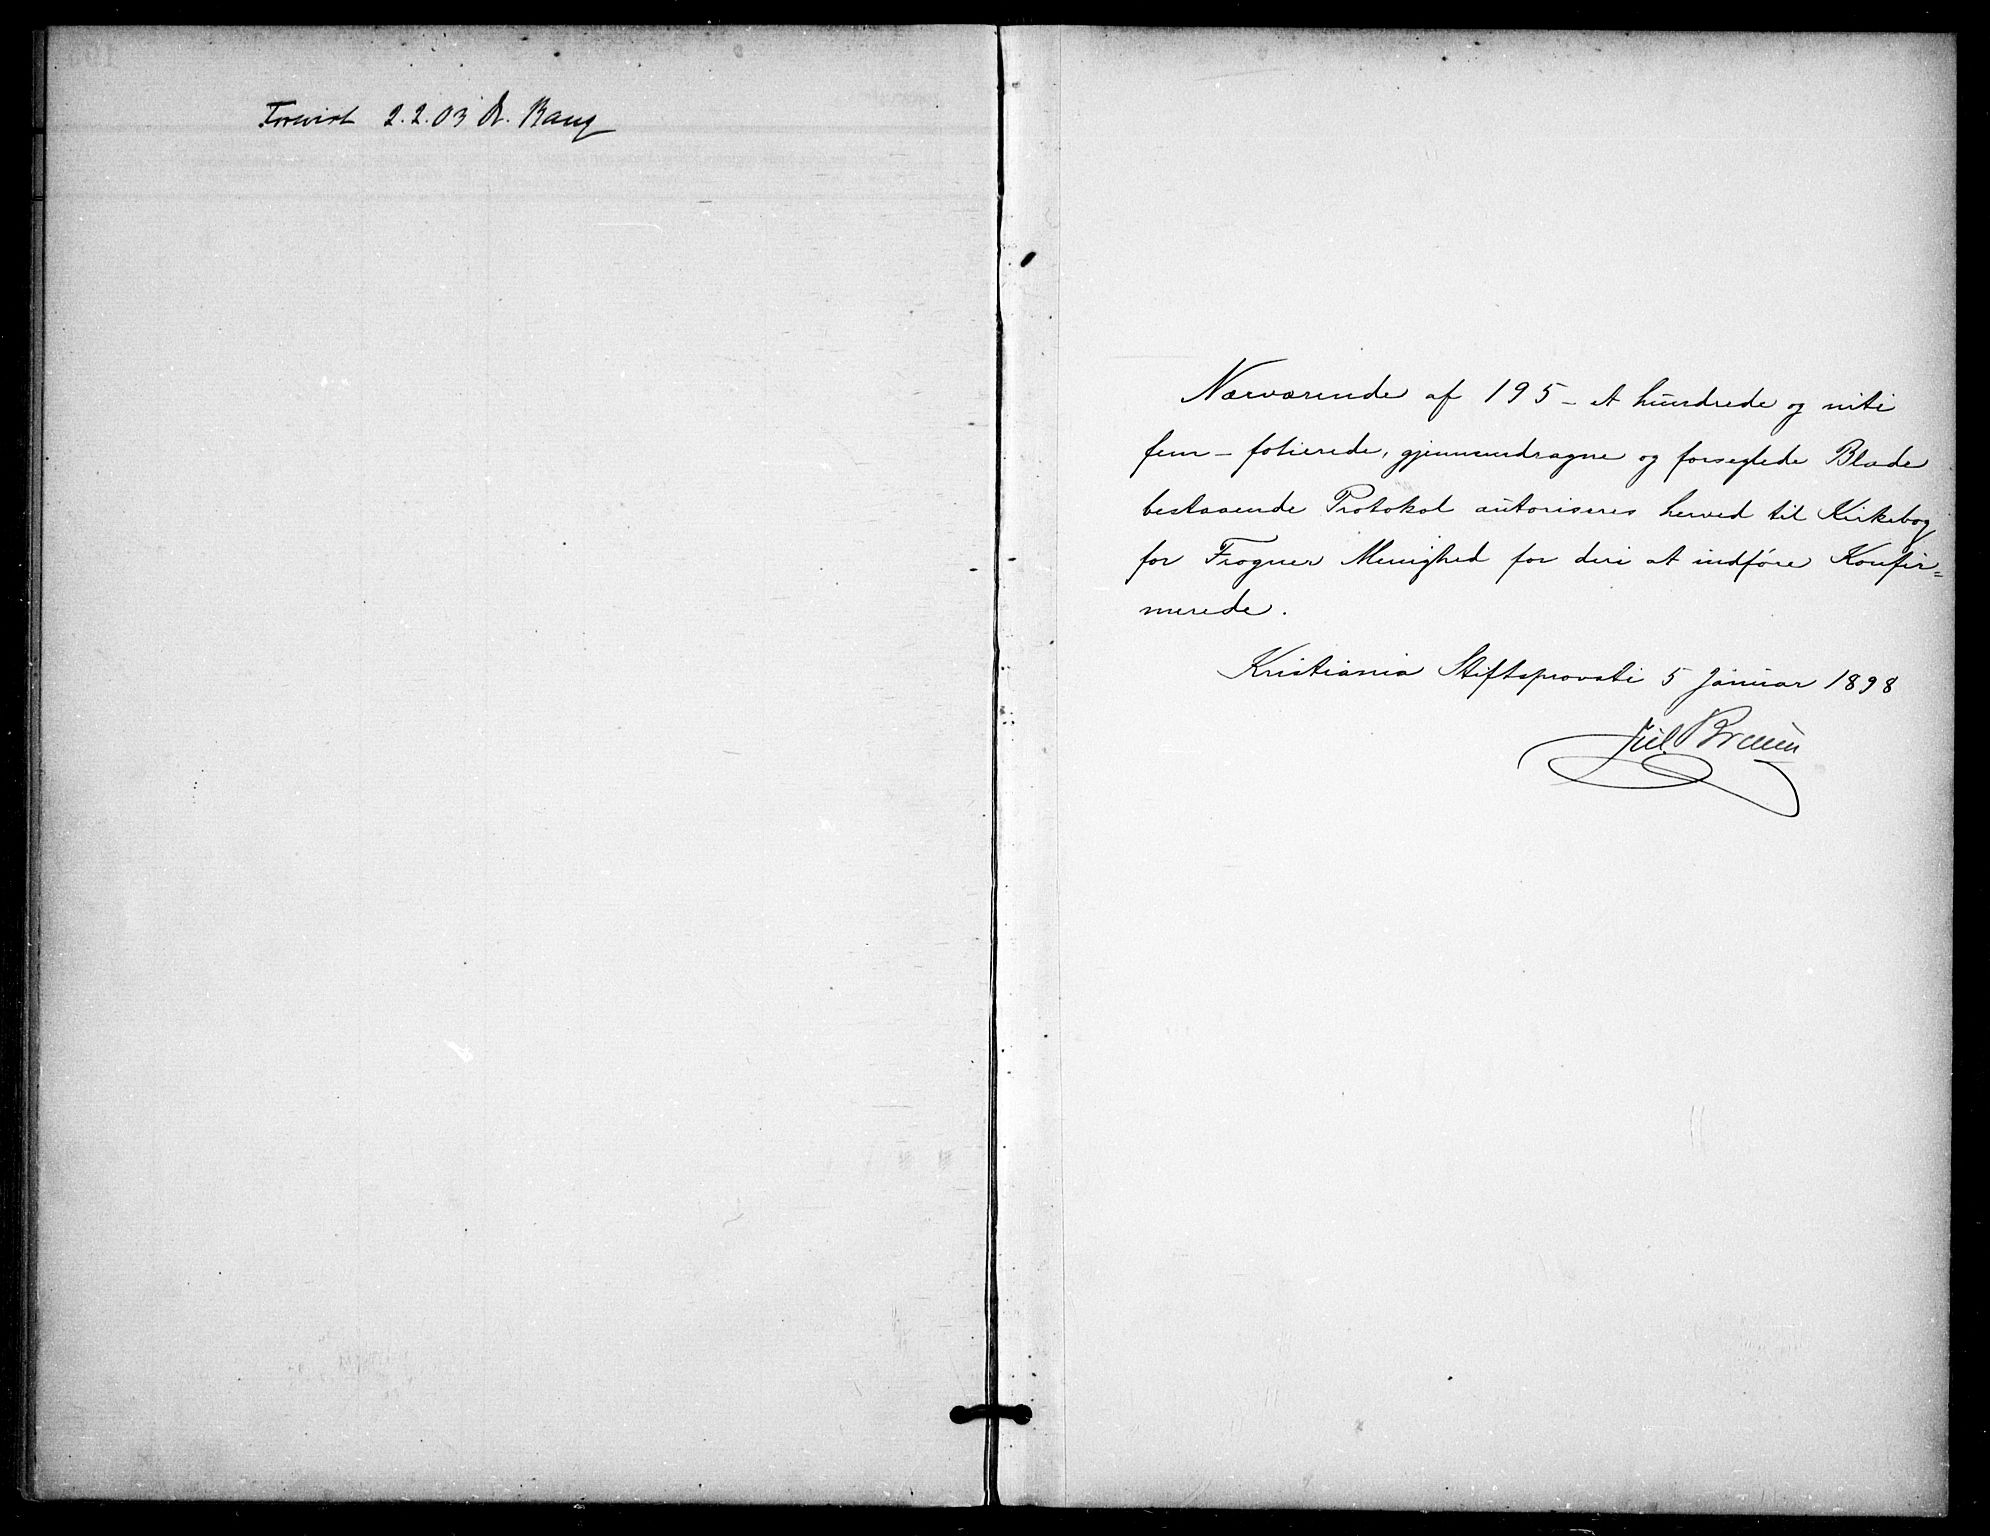 Forevist 2.2.03 A. Bang
Nærværende af 195 - et hundrede og niti
fem - folierede, gjennemdragne og forseglede Blade
bestaaende Protokol autoriseres herved til Kirkebog
for Frogner Menighed for deri at indføre Konfir=
merede.
Kristiania Stiftsprovsti 5 Januar 1898
Bruun